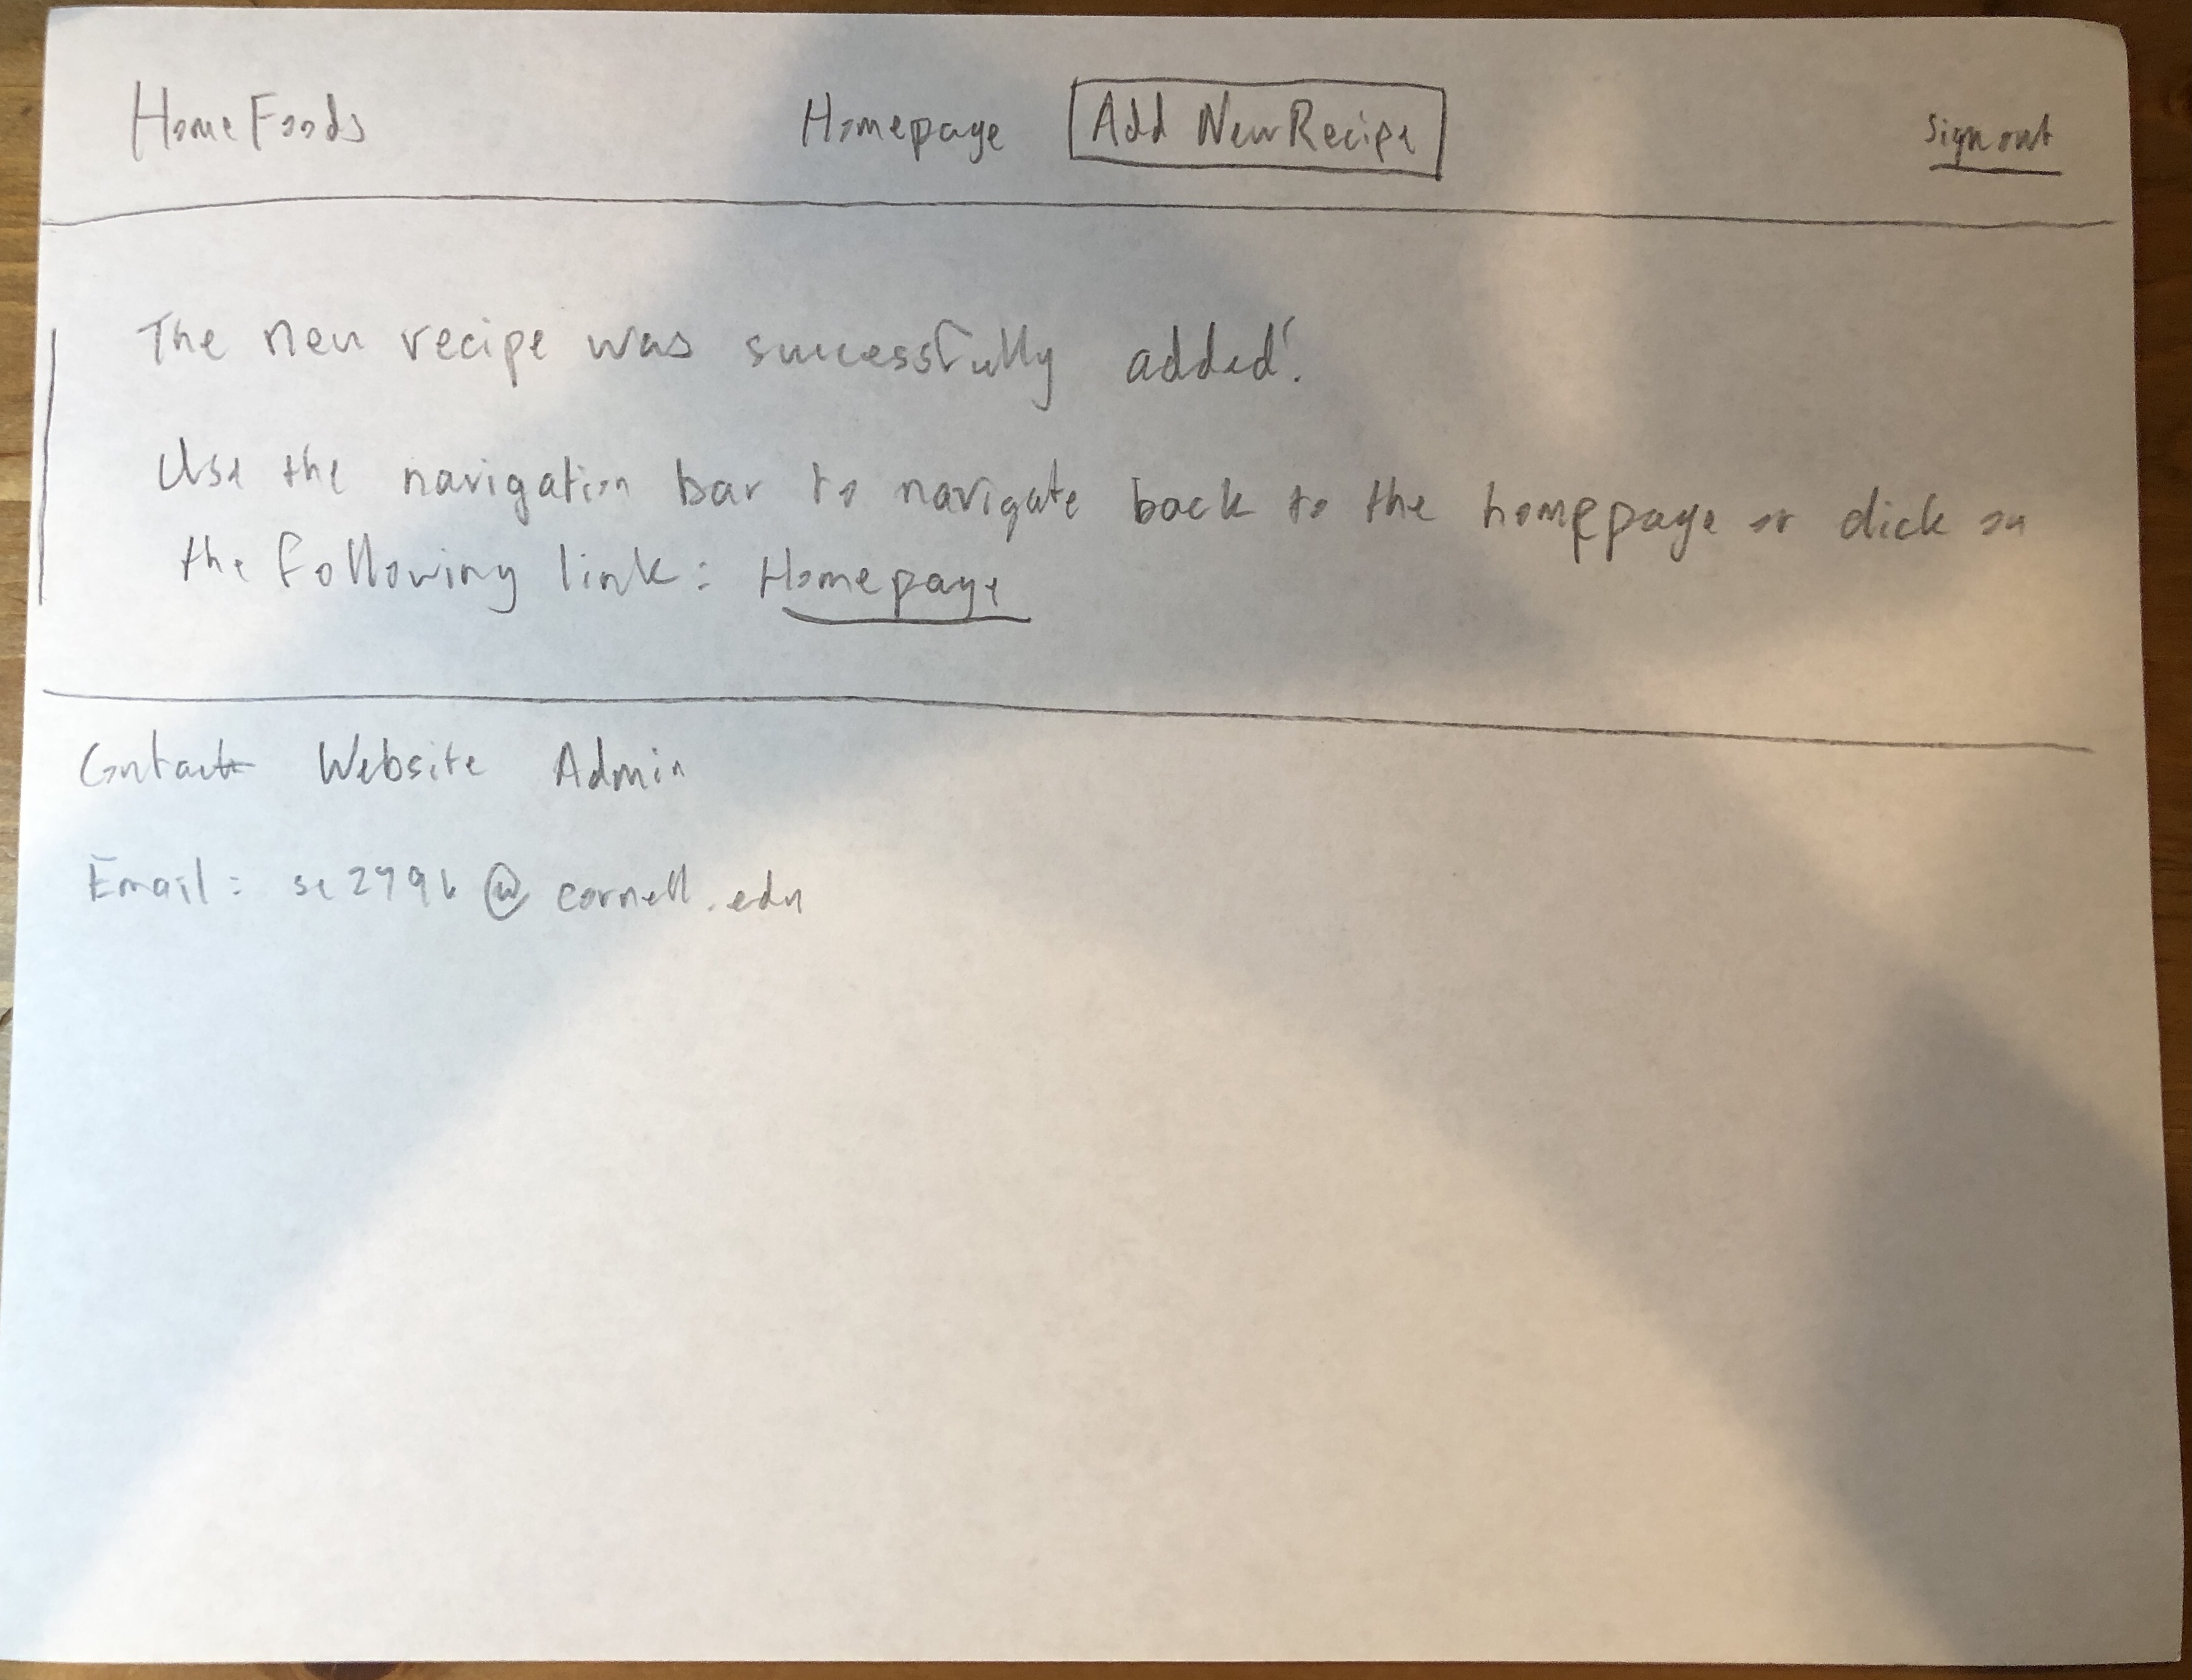 HomeFoods Homepage Add New Recipe sign out
The new recipe was successfully added!
Use the navigation bar to navigate back to the homepage or click on
the following link: Homepage
Contact Website Admin
Email: @cornell.edu